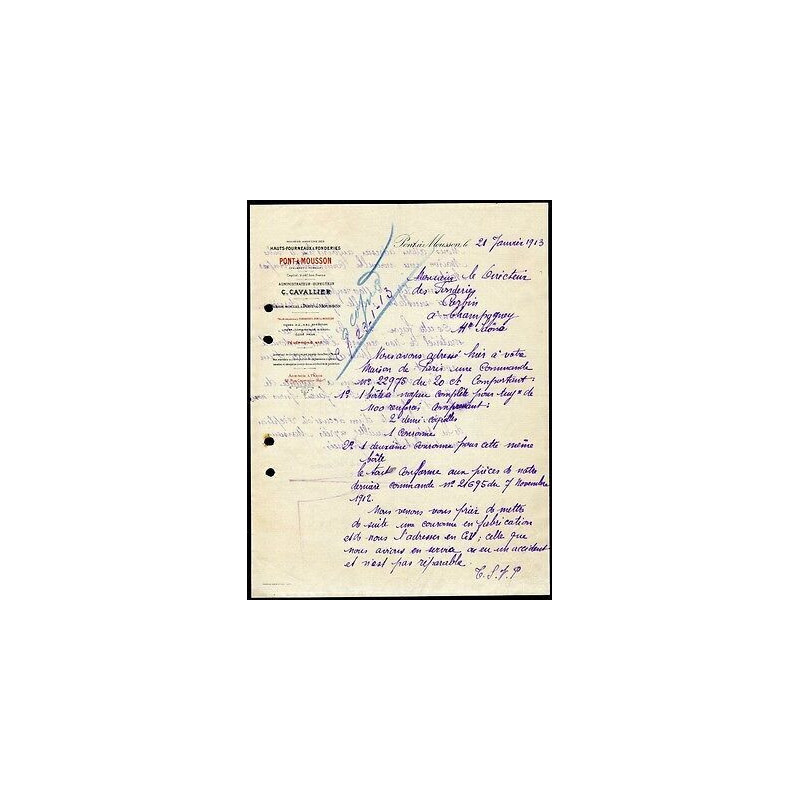 HAUTS-FOURNEAUX & FONDERIES
PONT-À-MOUSSON
ADMINISTRATEUR-DIRECTEUR
C. CAVALLIER
Pont-à-Mousson, le 21 Janvier 1913
23-1-13
Monsieur le Directeur
des Fonderies
à Champagney
Hte Saône
Nous avons adressé hier à votre
Maison de Paris une Commande
No 22975 du 20 ct Comportant:
1o 1 boîte à noyau complète pour tuyx de
1100 renforcés comprenant:
2 demi-coquilles
1 couronne
2o 1 deuxième couronne pour cette même
boîte
le tout Conforme aux pièces de notre
dernière commande no 21695 du 7 Novembre
1912.
Nous venons vous prier de mettre
de suite une couronne en fabrication
et de nous l'adresser en GV; celle que
nous avions en service a eu un accident
et n'est pas réparable.
T.S.V.P